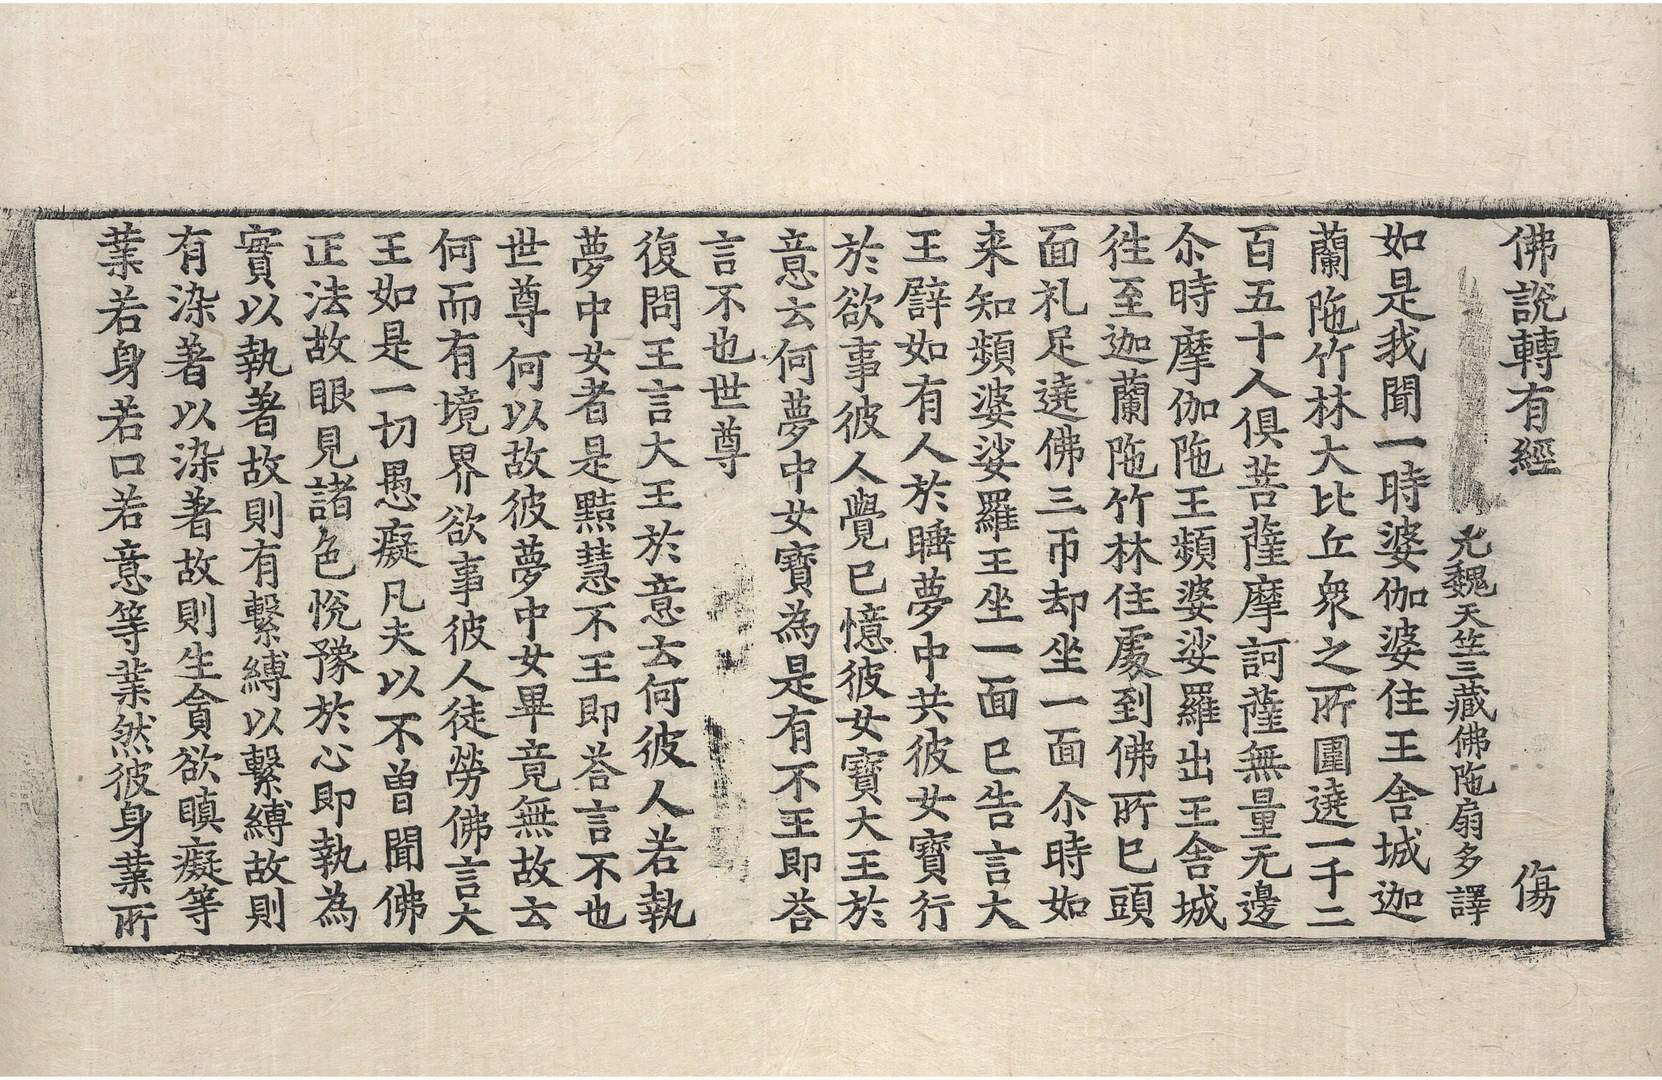 佛說轉有經 傷
元魏天竺三藏佛陁扇多譯
如是我聞一時婆伽婆住王舍城迦
蘭陁竹林大比丘衆之所圍遶一千二
百五十人俱菩薩摩訶薩無量无邊
尒時摩伽陁王頻婆娑羅出王舍城
徃至迦蘭陁竹林住處到佛所已頭
面礼足遶佛三帀却坐一面尒時如
来知頻婆娑羅王坐一面已告言大
王譬如有人於睡夢中共彼女寶行
於欲事彼人覺已憶彼女寶大王於
意云何夢中女寶為是有不王即荅
言不也世尊
復問王言大王於意云何彼人若執
夢中女者是黠慧不王即荅言不也
世尊何以故彼夢中女畢竟無故云
何而有境界欲事彼人徒勞佛言大
王如是一切愚癡凡夫以不曾聞佛
正法故眼見諸色恱豫於心即執為
實以執著故則有繫縛以繫縛故則
有染著以染著故則生貪欲瞋癡等
業若身若口若意等業然彼身業所